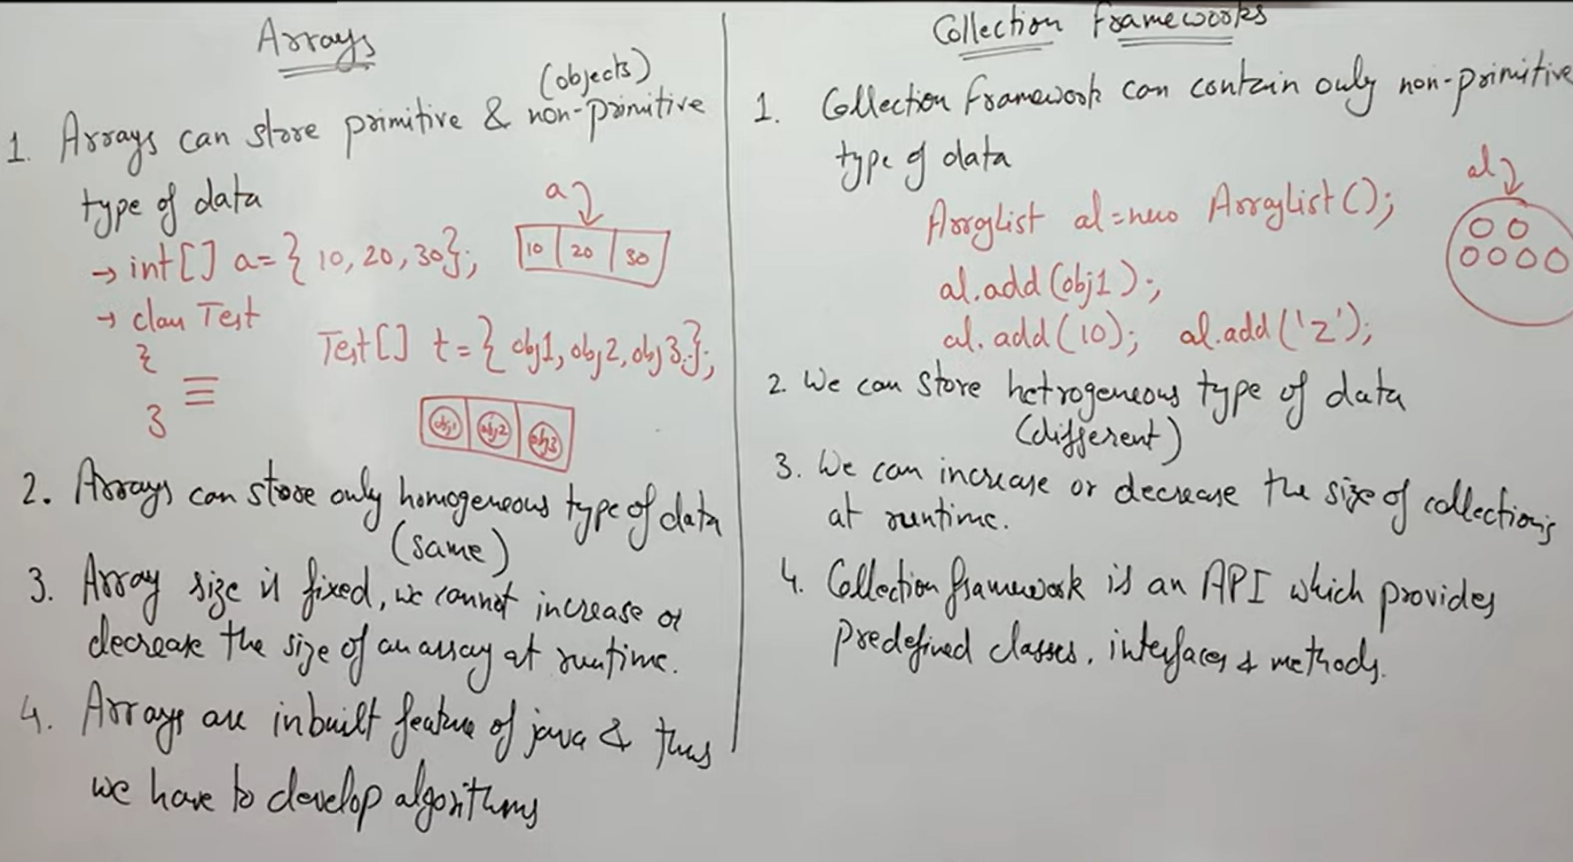 Arrays
(objects)
1. Arrays can store primitive & non-primitive
type of data
a
→ int[] a={ 10, 20, 30};
10 20 30
→ class Test
{
}
Test[] t={ obj1, obj2, obj3.};
obj1 obj2 obj3
2. Arrays can store only homogeneous type of data
(same)
3. Array size is fixed, we cannot increase or
decrease the size of an array at runtime.
4. Arrays are inbuilt feature of java & thus
we have to develop algorithms
Collection Frameworks
1. Collection Framework can contain only non-primitive
type of data
al
ArrayList al=new ArrayList();
al.add(obj1);
al.add(10); al.add('z');
2. We can store hetrogeneous type of data
(different)
3. We can increase or decrease the size of collections
at runtime.
4. Collection framework is an API which provides
predefined classes, interfaces & methods.